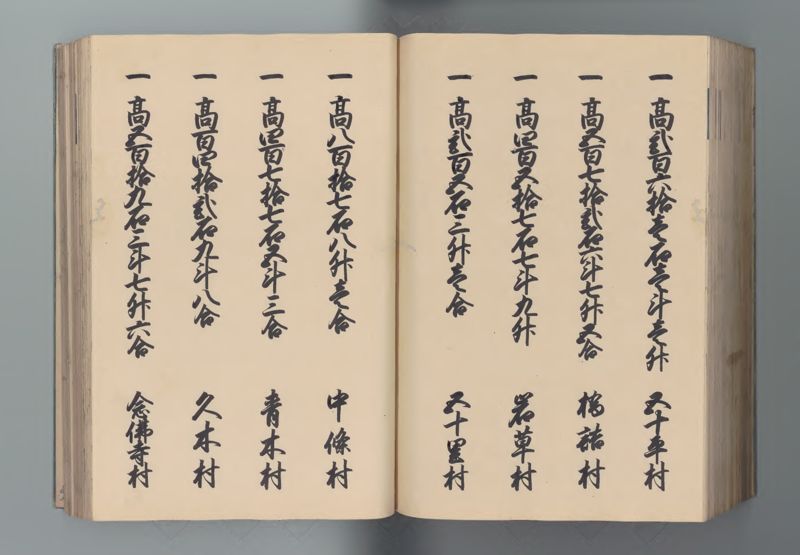 一 高弐百六拾壱石壱斗壱升 五十平村
一 高五百七拾弐石六斗七升五合 橋詰村
一 高四百五拾七石七斗九升 岩草村
一 高弐百五石二升壱合 五十里村
一 高八百拾七石八升壱合 中條村
一 高四百七拾七石五斗三合 青木村
一 高百四拾弐石九斗八合 久木村
一 高五百拾九石三斗七升六合 念佛寺村